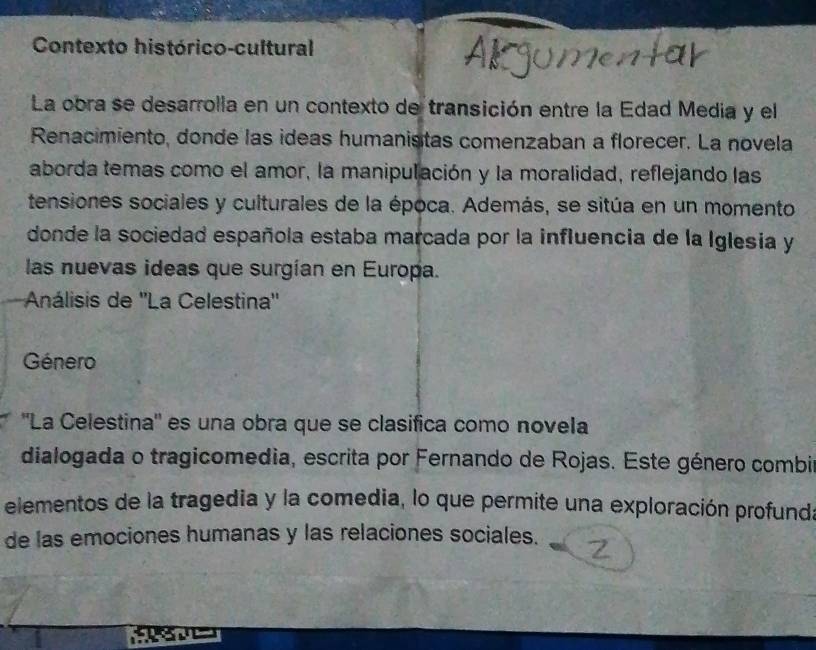 Contexto histórico-cultural
Argumentar
La obra se desarrolla en un contexto de transición entre la Edad Media y el
Renacimiento, donde las ideas humanistas comenzaban a florecer. La novela
aborda temas como el amor, la manipulación y la moralidad, reflejando las
tensiones sociales y culturales de la época. Además, se sitúa en un momento
donde la sociedad española estaba marcada por la influencia de la Iglesia y
las nuevas ideas que surgían en Europa.
Análisis de "La Celestina"
Género
"La Celestina" es una obra que se clasifica como novela
dialogada o tragicomedia, escrita por Fernando de Rojas. Este género combi
elementos de la tragedia y la comedia, lo que permite una exploración profunda
de las emociones humanas y las relaciones sociales.
2